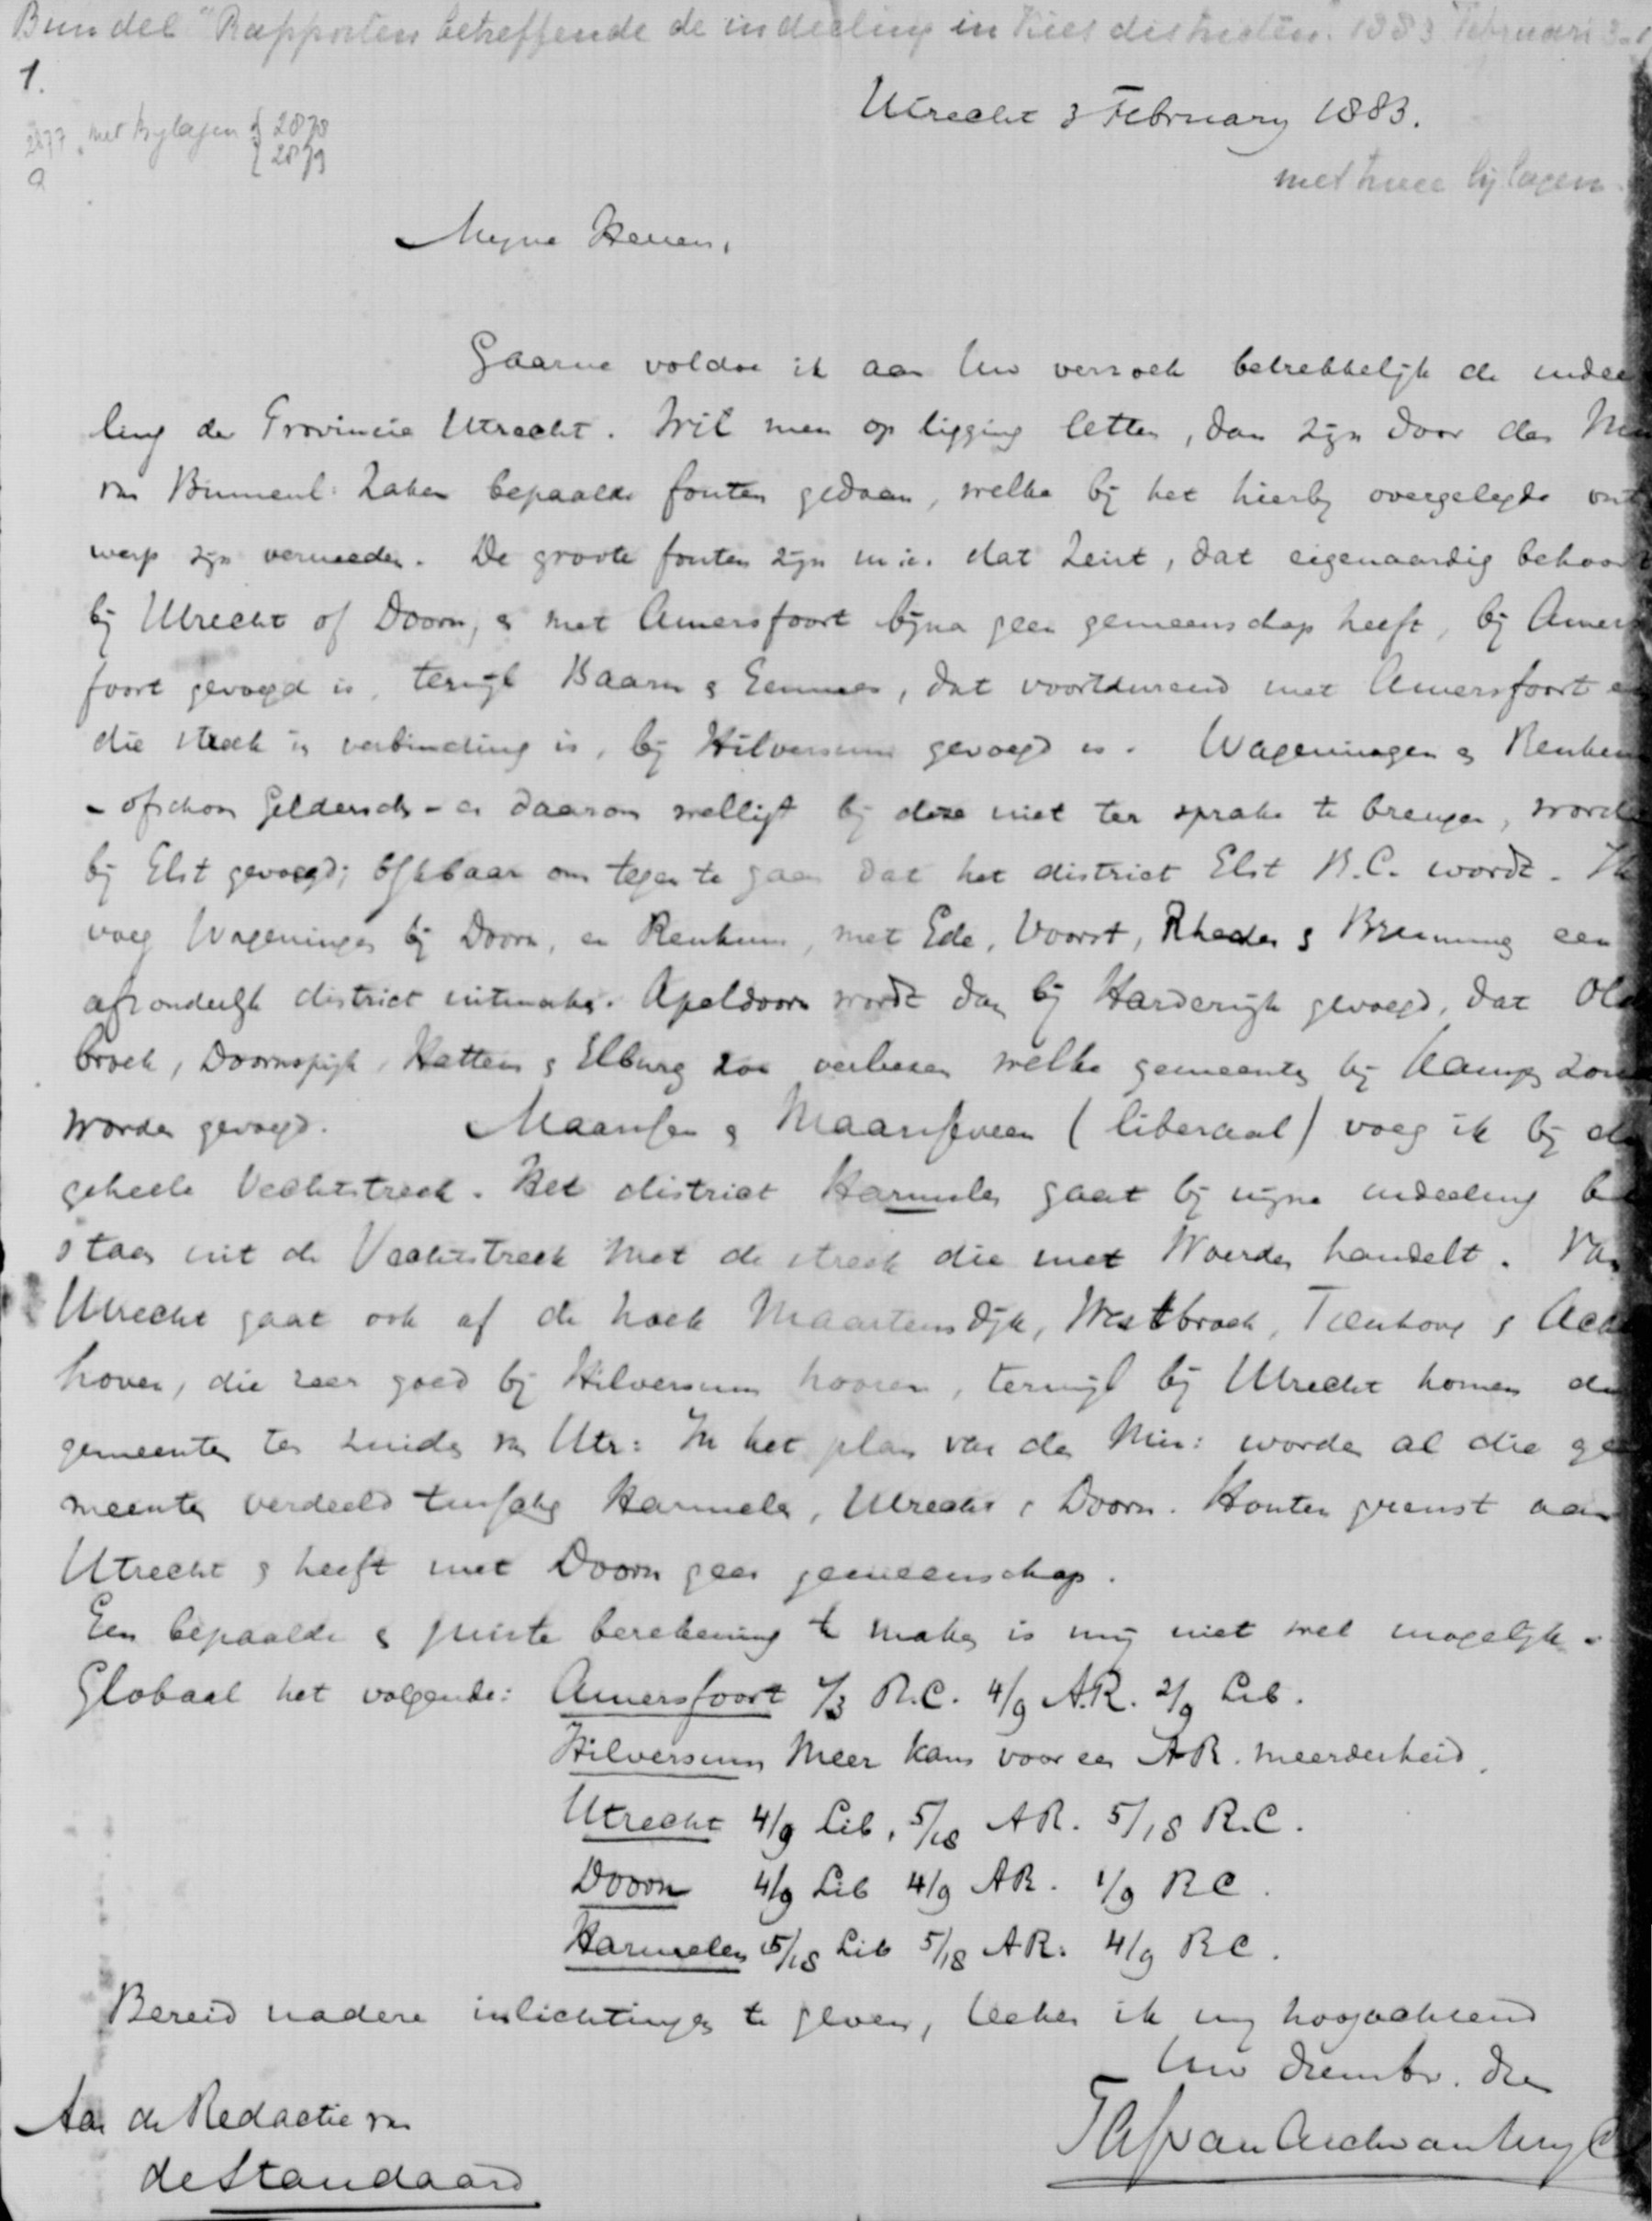 Bundel "Rapporten betreffende de indeeling in Kiesdistricten." 1883 Februari 3
1.
Utrecht 3 February 1883.
2877 met Bylagen { 2878
{ 2879
a
met twee bijlagen.
Mijne Heeren,
Gaarne voldoe ik aan Uw verzoek betrekkelijk de indee
ling der Provincie Utrecht. Wil men op ligging letten, dan zijn door den Min
van Binnenl: Zaken bepaalde fouten gedaan, welke bij het hierbij overgelegde ont
werp zijn vermeden. De groote fouten zijn m.i. dat Zeist, dat eigenaardig behoort
bij Utrecht of Doorn, & met Amersfoort bijna geen gemeenschap heeft, bij Amers
foort gevoegd is, terwijl Baarn & Eemnes, dat voortdurend met Amersfoort en
die streek in verbinding is, bij Hilversum gevoegd is. Wageningen & Renkum
- ofschoon Geldersch - en daarom wellicht bij deze niet ter sprake te brengen, worden
bij Elst gevoegd; blijkbaar om tegen te gaan dat het district Elst R.C. wordt. Ik
voeg Wageningen bij Doorn, en Renkum, met Ede, Voorst, Rheden & Brummen een
afzonderlijk district uitmaken. Apeldoorn wordt dan bij Harderwijk gevoegd, dat Ol
broek, Doornspijk, Hattem & Elburg zou verliezen welke gemeenten bij Kampen zou
worden gevoegd. Maarssen & Maarsseveen (liberaal) voeg ik bij de
geheele Vechtstreek. Het district Harmelen gaat bij mijne indeeling be
staan uit de Vechtstreek met de streek die met Woerden handelt. Van
Utrecht gaat ook af de hoek Maartensdijk, Westbroek, Tienhoven & Acht
hoven, die zeer goed bij Hilversum hooren, terwijl bij Utrecht komen de
gemeenten ten zuiden van Utr: In het plan van den Min: worden al die ge
meenten verdeeld tusschen Harmelen, Utrecht & Doorn. Houten grenst aan
Utrecht & heeft met Doorn geen gemeenschap.
Een bepaalde & juiste berekening te maken is mij niet wel mogelijk.
Globaal het volgende: Amersfoort 1/3 R.C. 4/9 A.R. 2/9 Lib.
Hilversum Meer kans voor een A.R. meerderheid.
Utrecht 4/9 Lib, 5/18 AR. 5/18 R.C.
Doorn 4/9 Lib 4/9 AR. 1/9 RC.
Harmelen 5/18 Lib 5/18 AR: 4/9 RC.
Bereid nadere inlichtingen te geven, teeken ik mij hoogachtend
Uw dienstw. dr
Aan de Redactie van
de Standaard